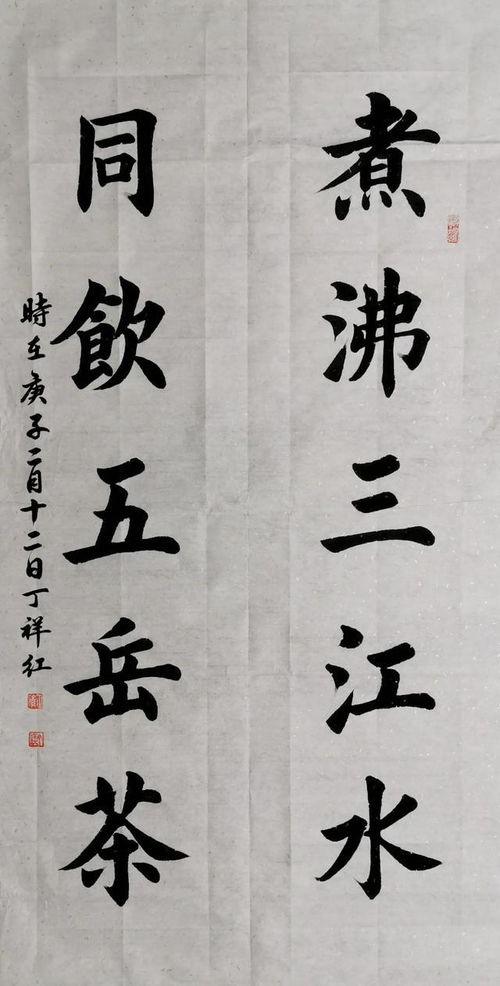 煮沸三江水
同飲五岳茶
時在庚子二月十二日丁祥红